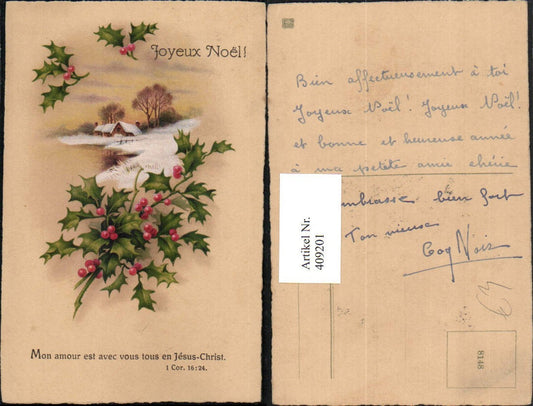 Joyeux Noël!
Mon amour est avec vous tous en Jésus-Christ.
1 Cor. 16:24.
Bien affectueusement à toi
Joyeux Noël! Joyeux Noël!
et bonne et heureuse année
à ma petite amie chérie
mbrasse bien fort
Ton vieux
Coq Noir
Artikel Nr.
409201
8148